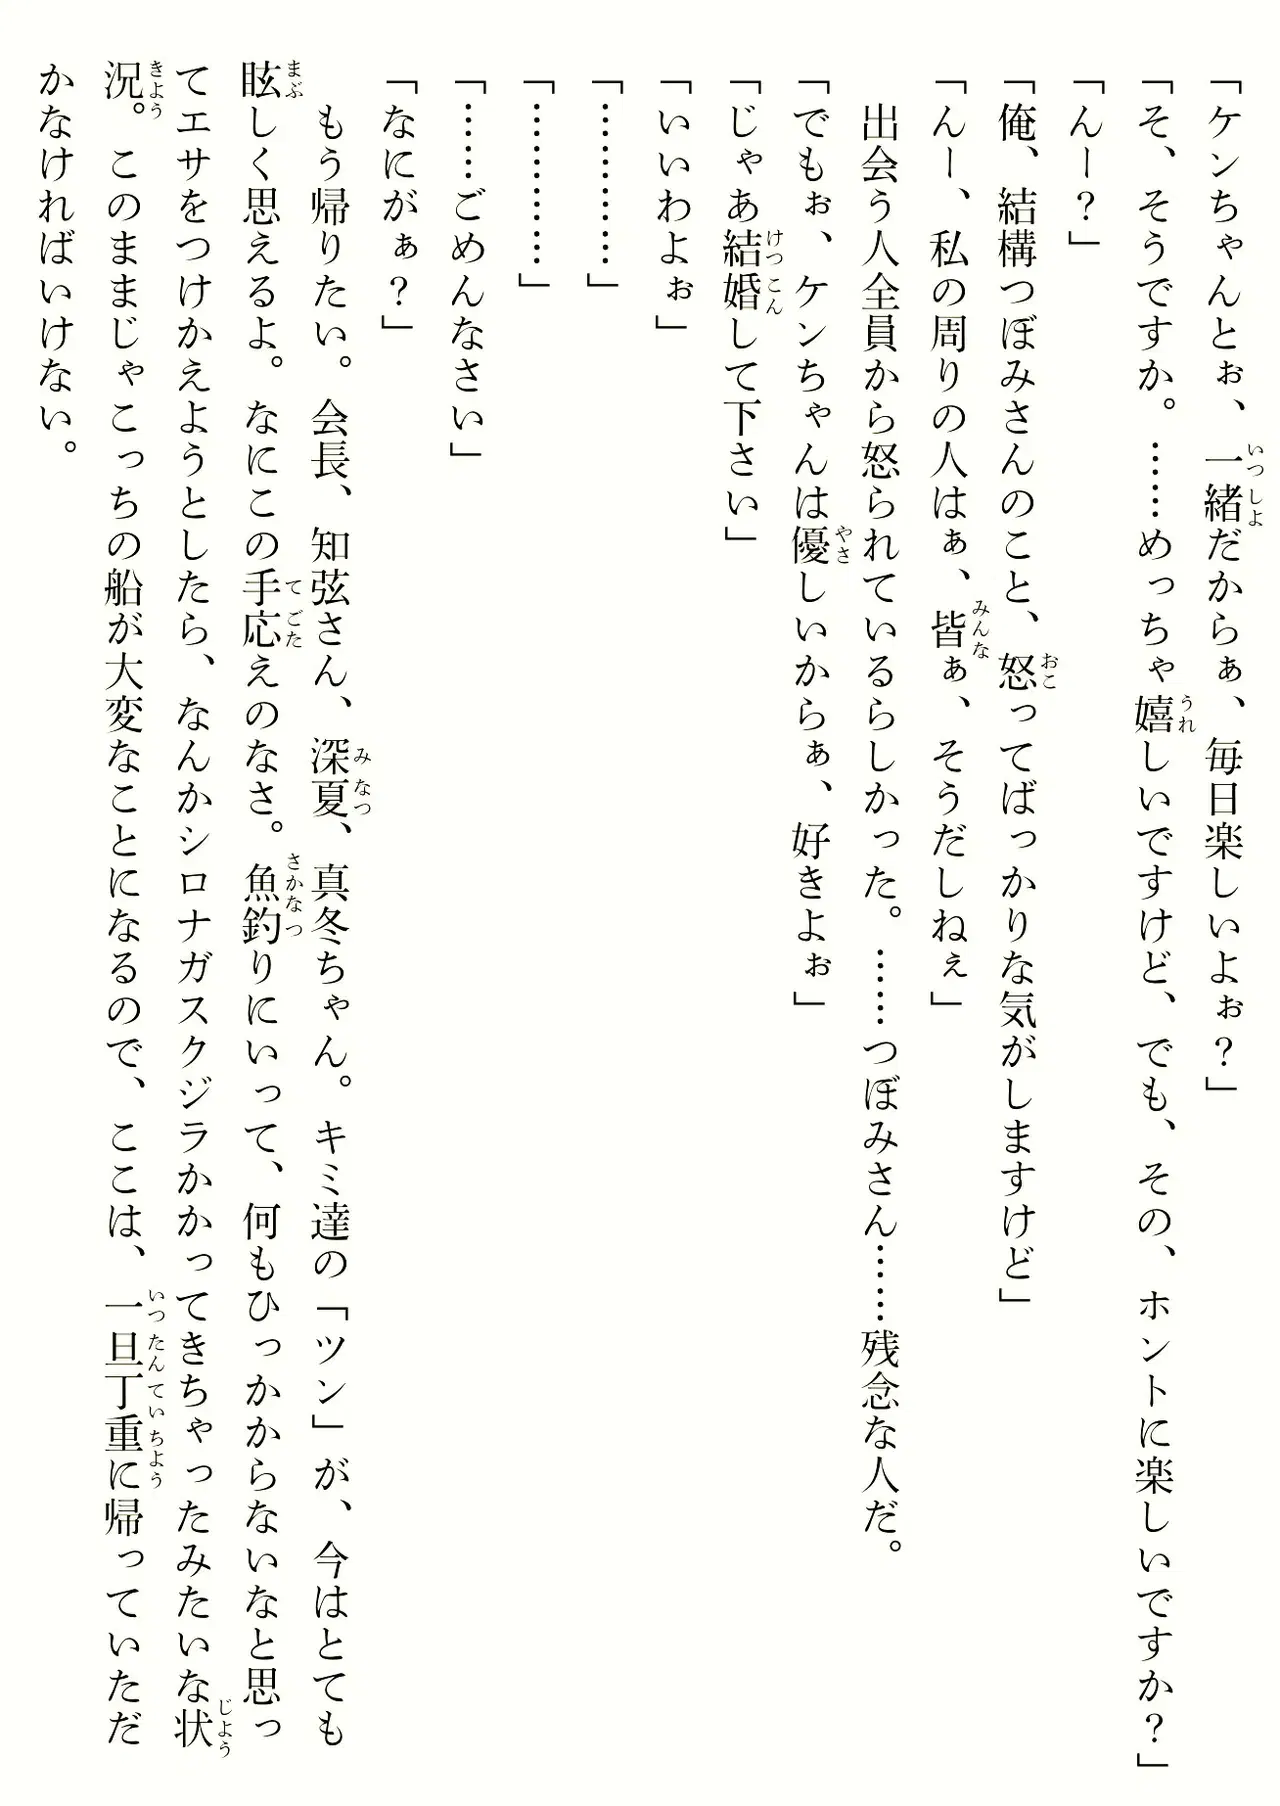 「ケンちゃんとぉ、一緒だからぁ、毎日楽しいよぉ？」
「そ、そうですか。……めっちゃ嬉しいですけど、でも、その、ホントに楽しいですか？」
「んー？」
「俺、結構つぼみさんのこと、怒ってばっかりな気がしますけど」
「んー、私の周りの人はぁ、皆ぁ、そうだしねぇ」
　出会う人全員から怒られているらしかった。……つぼみさん……残念な人だ。
「でもぉ、ケンちゃんは優しいからぁ、好きよぉ」
「じゃあ結婚して下さい」
「いいわよぉ」
「…………」
「…………」
「……ごめんなさい」
「なにがぁ？」
　もう帰りたい。会長、知弦さん、深夏、真冬ちゃん。キミ達の「ツン」が、今はとても
眩しく思えるよ。なにこの手応えのなさ。魚釣りにいって、何もひっかからないなと思っ
てエサをつけかえようとしたら、なんかシロナガスクジラかかってきちゃったみたいな状
況。このままじゃこっちの船が大変なことになるので、ここは、一旦丁重に帰っていただ
かなければいけない。